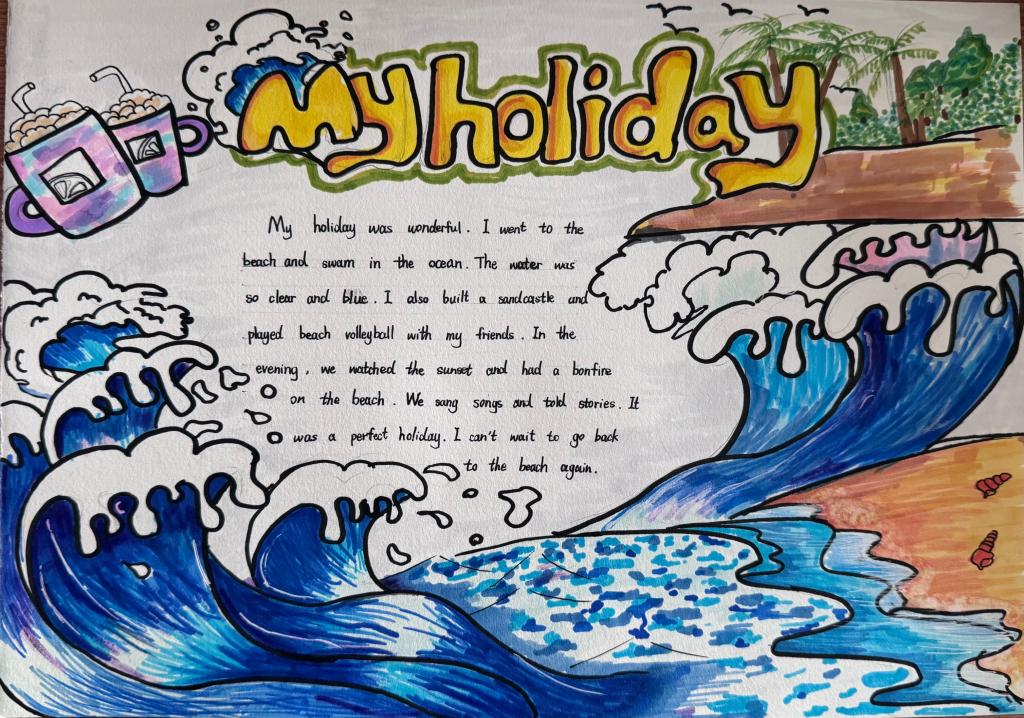 My holiday
My holiday was wonderful. I went to the
beach and swam in the ocean. The water was
so clear and blue. I also built a sandcastle and
played beach volleyball with my friends. In the
evening, we watched the sunset and had a bonfire
on the beach. We sang songs and told stories. It
was a perfect holiday. I can't wait to go back
to the beach again.